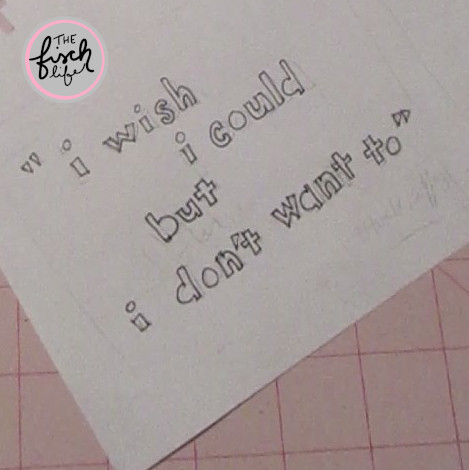 THE
fisch
life
"i wish
i could
but
i don't want to"